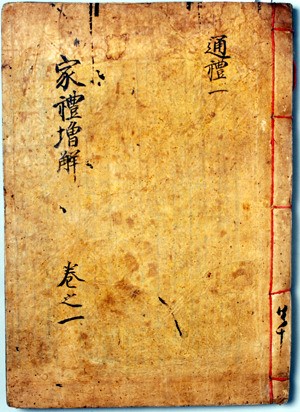 通禮一
家禮增解 卷之一
共十